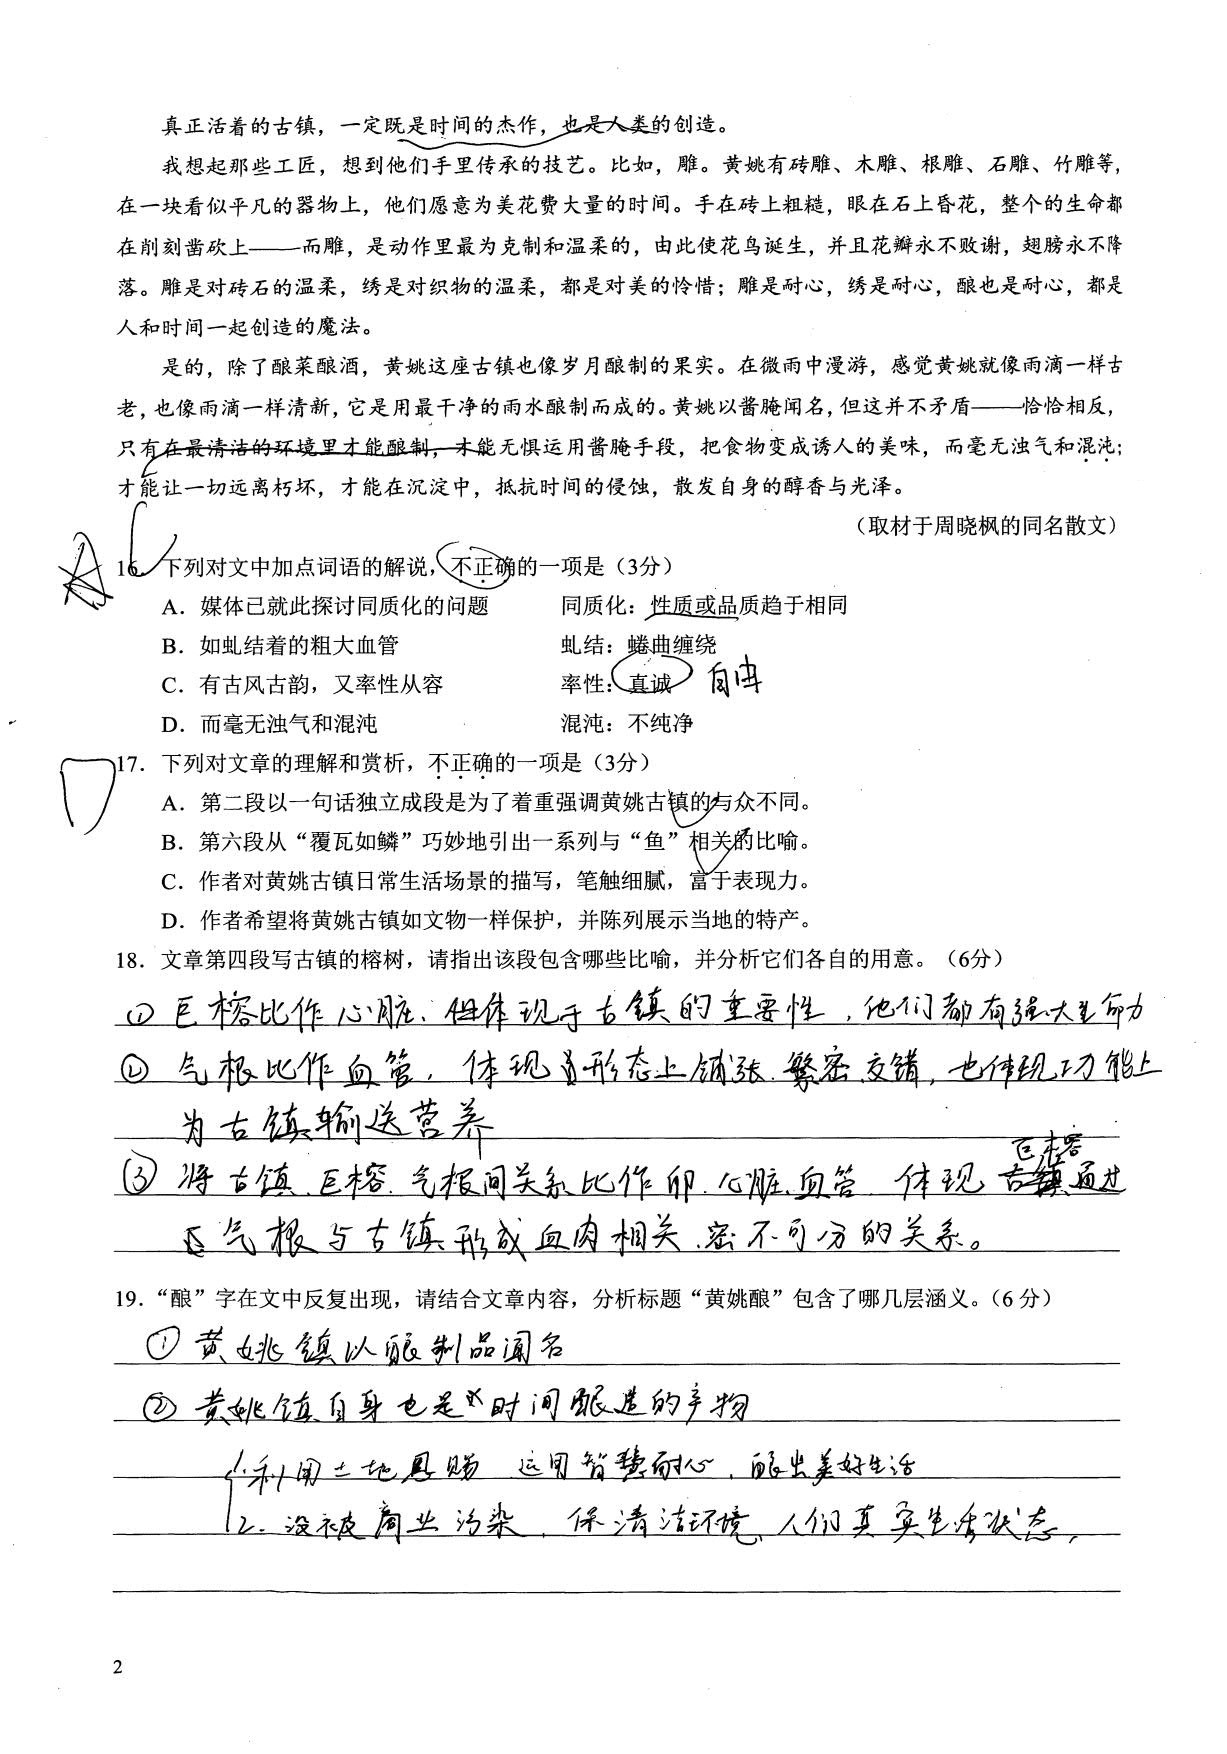 真正活着的古镇，一定既是时间的杰作，也是人类的创造。
我想起那些工匠，想到他们手里传承的技艺。比如，雕。黄姚有砖雕、木雕、根雕、石雕、竹雕等，
在一块看似平凡的器物上，他们愿意为美花费大量的时间。手在砖上粗糙，眼在石上昏花，整个的生命都
在削刻凿砍上——而雕，是动作里最为克制和温柔的，由此使花鸟诞生，并且花瓣永不败谢，翅膀永不降
落。雕是对砖石的温柔，绣是对织物的温柔，都是对美的怜惜；雕是耐心，绣是耐心，酿也是耐心，都是
人和时间一起创造的魔法。
是的，除了酿菜酿酒，黄姚这座古镇也像岁月酿制的果实。在微雨中漫游，感觉黄姚就像雨滴一样古
老，也像雨滴一样清新，它是用最干净的雨水酿制而成的。黄姚以酱腌闻名，但这并不矛盾——恰恰相反，
只有在最清洁的环境里才能酿制，才能无惧运用酱腌手段，把食物变成诱人的美味，而毫无浊气和混沌；
才能让一切远离朽坏，才能在沉淀中，抵抗时间的侵蚀，散发自身的醇香与光泽。
（取材于周晓枫的同名散文）
16．下列对文中加点词语的解说，不正确的一项是（3分）
A．媒体已就此探讨同质化的问题 同质化：性质或品质趋于相同
B．如虬结着的粗大血管 虬结：蜷曲缠绕
C．有古风古韵，又率性从容 率性：真诚 自由
D．而毫无浊气和混沌 混沌：不纯净
17．下列对文章的理解和赏析，不正确的一项是（3分）
A．第二段以一句话独立成段是为了着重强调黄姚古镇的与众不同。
B．第六段从“覆瓦如鳞”巧妙地引出一系列与“鱼”相关的比喻。
C．作者对黄姚古镇日常生活场景的描写，笔触细腻，富于表现力。
D．作者希望将黄姚古镇如文物一样保护，并陈列展示当地的特产。
18．文章第四段写古镇的榕树，请指出该段包含哪些比喻，并分析它们各自的用意。（6分）
① 巨榕比作心脏、体现于古镇的重要性，他们都有强大生命力
② 气根比作血管，体现形态上铺张、繁密交错，也体现功能上
为古镇输送营养
③ 将古镇、巨榕、气根间关系比作卵、心脏、血管 体现 巨榕 通过
气根与古镇形成血肉相关、密不可分的关系。
19．“酿”字在文中反复出现，请结合文章内容，分析标题“黄姚酿”包含了哪几层涵义。（6 分）
① 黄姚镇以酿制品闻名
② 黄姚镇自身也是时间酿造的产物
1. 利用土地恩赐 运用智慧耐心，酿出美好生活
2. 没被商业污染、保清洁环境、人们真实生活状态，
2